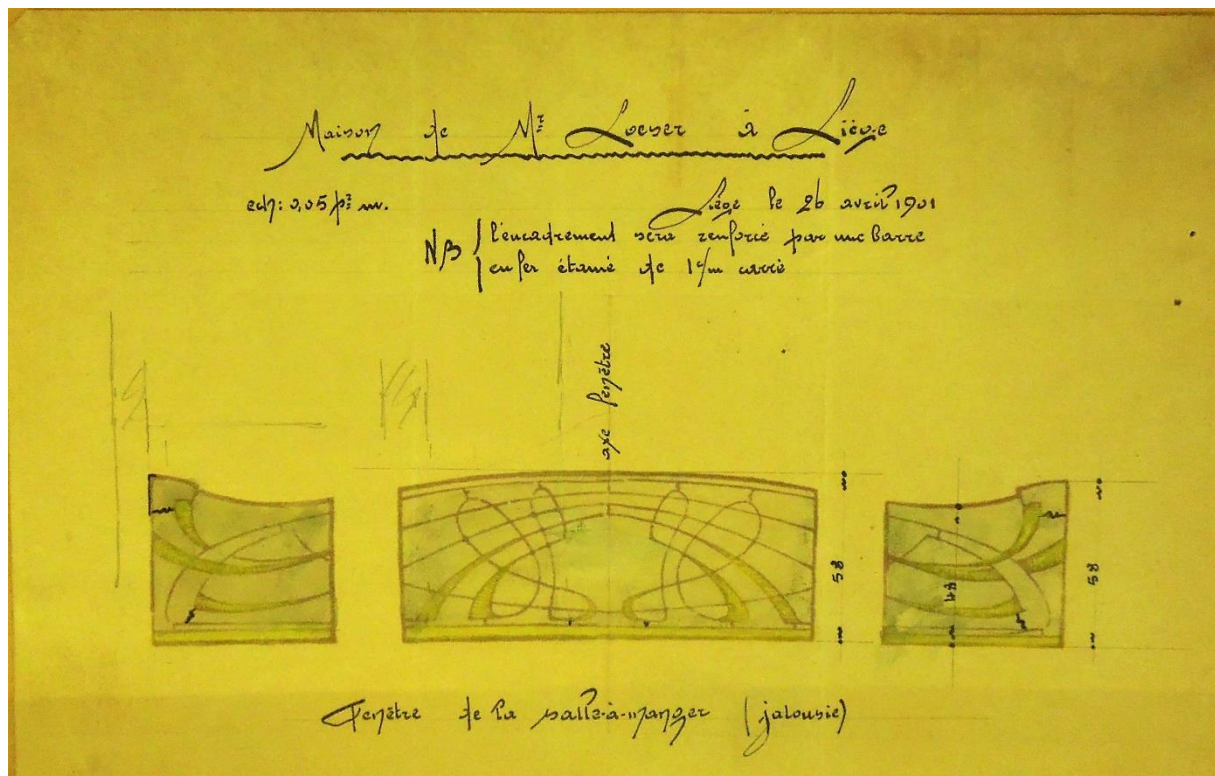 Maison de Mr Loeser à Liège
ech: 0,05 pr m.
Liège le 26 avril 1901
NB l'encadrement sera renforcé par une barre
en fer étamé de 1c/m carré
axe fenêtre
58
48
58
Fenêtre de la salle-à-manger (jalousie)